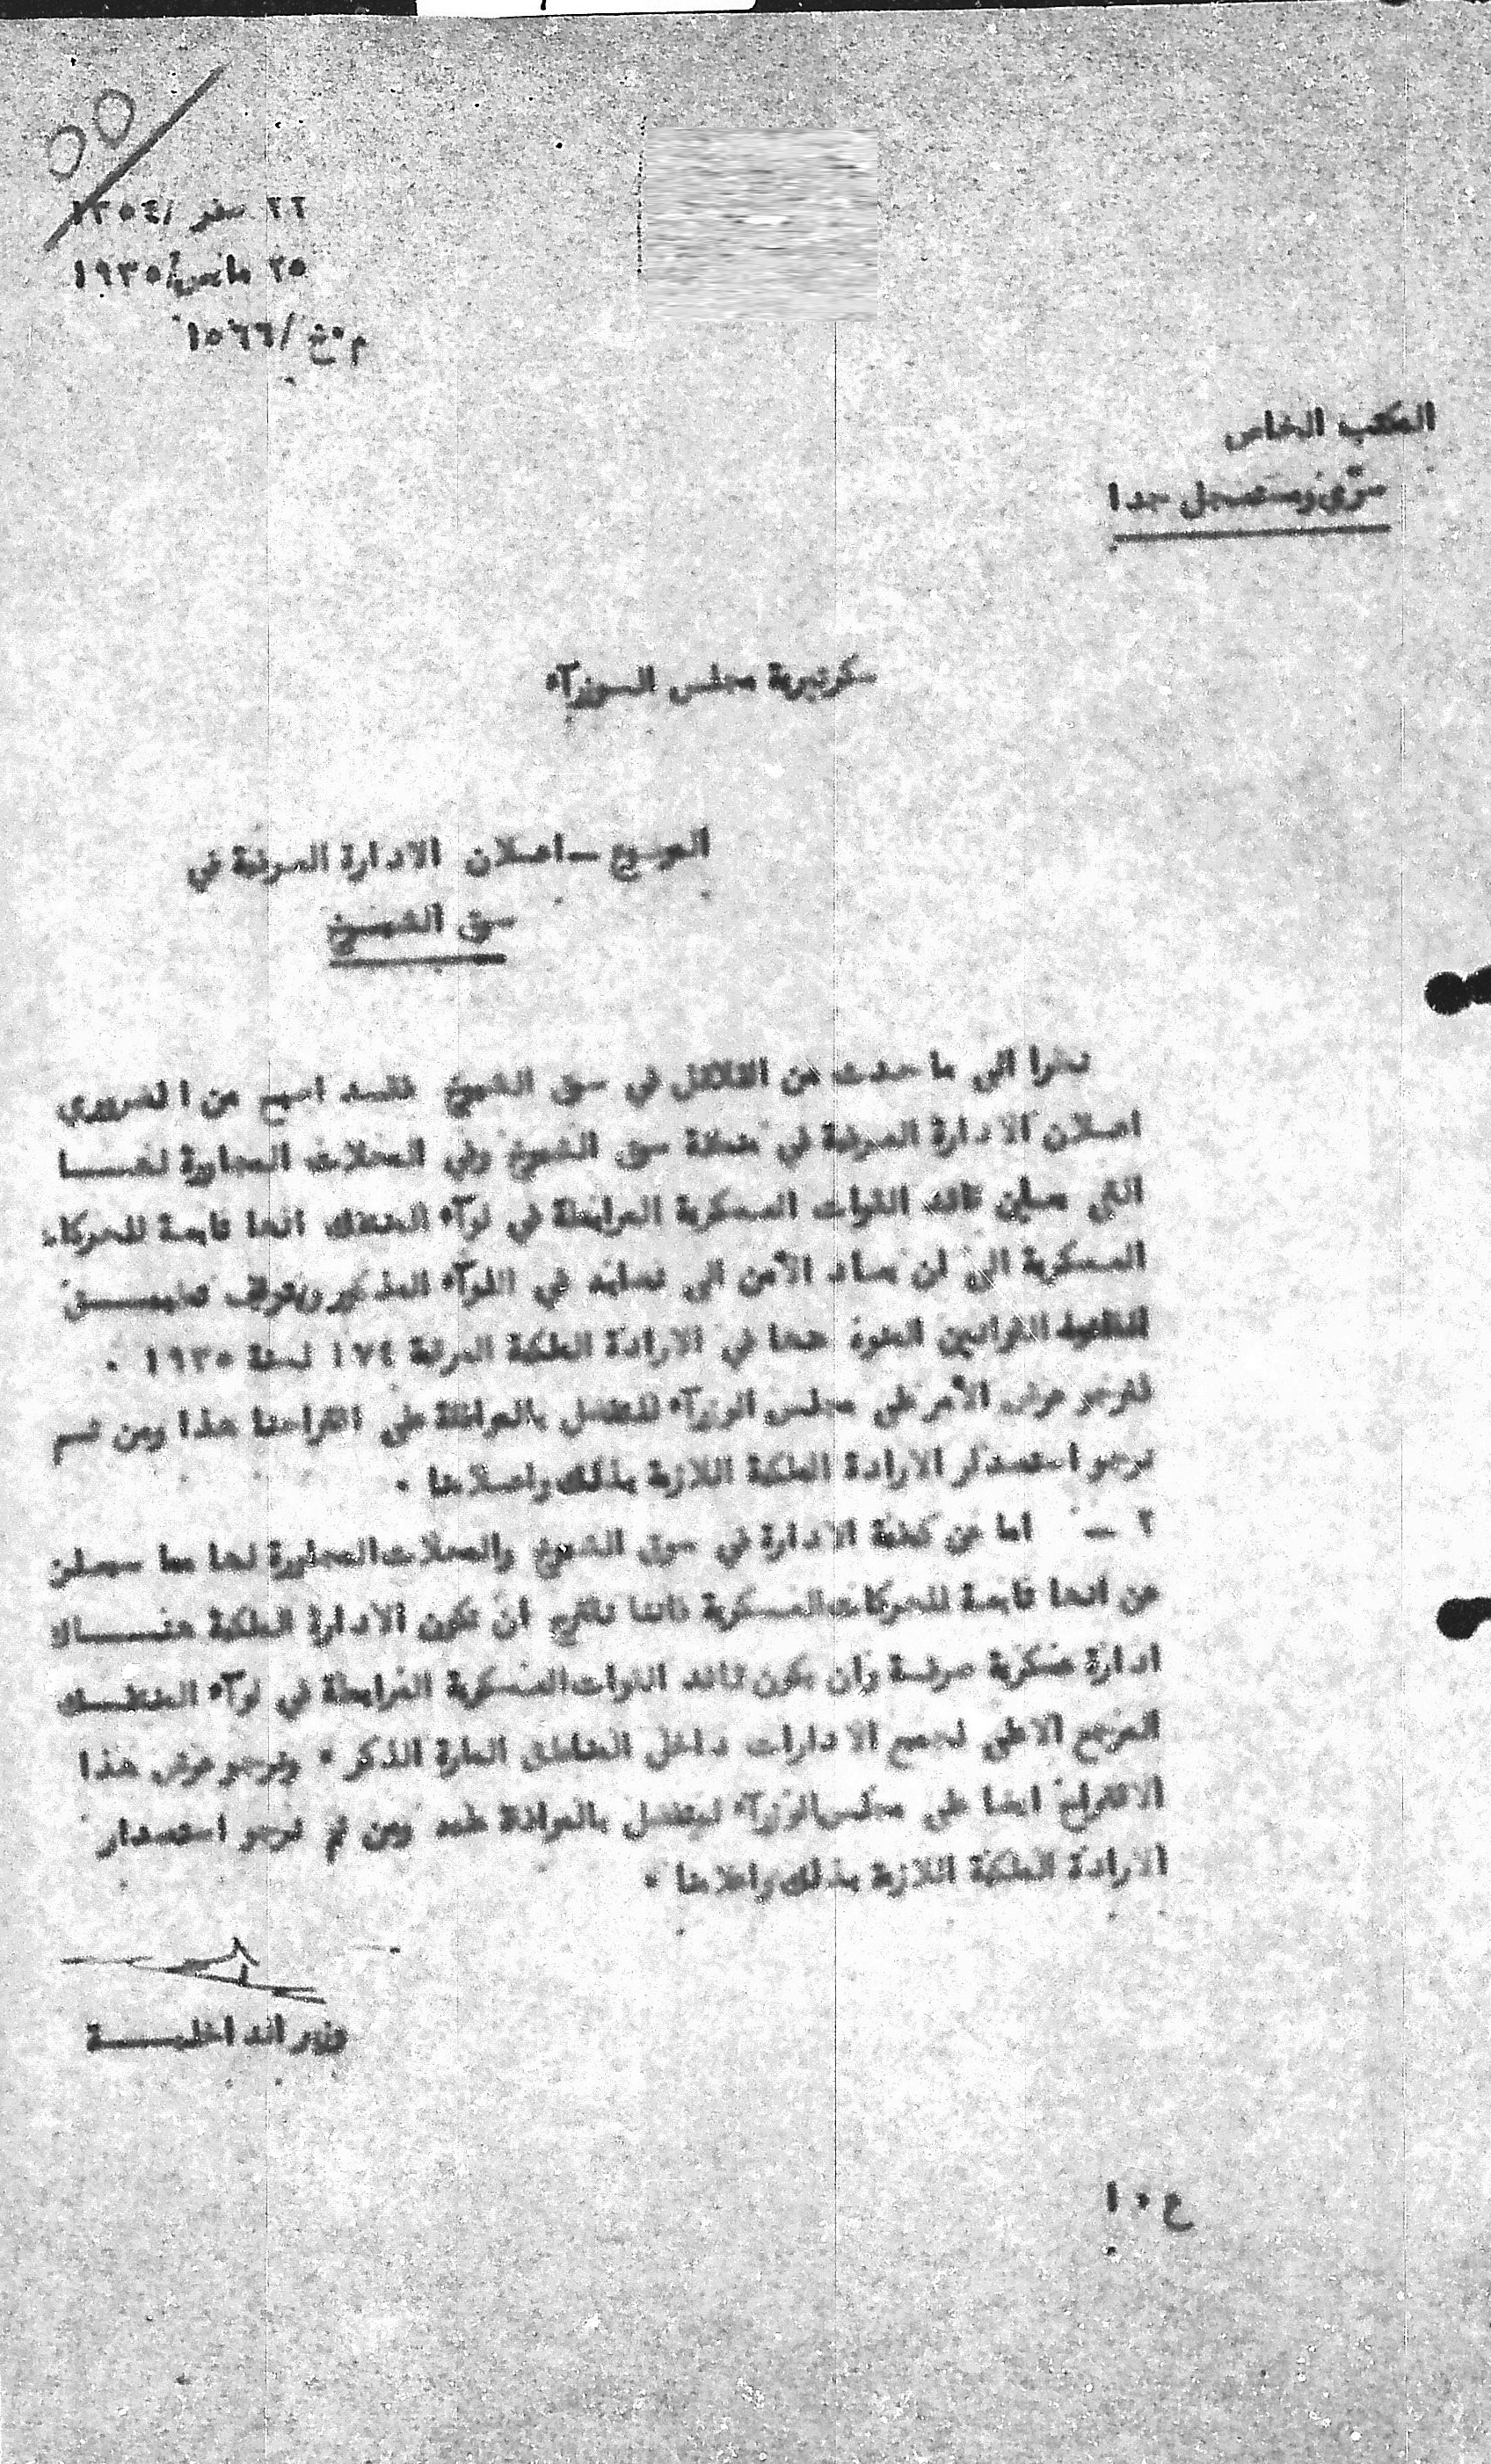 ٥٥
٢٢ صفر /١٣٥٤
٢٥ مايس/١٩٣٥
م٠خ /١٥٦٦
المكتب الخاص
سرّي ومستعجل جدا
سكرتيرية مجلس الوزرآء
الموضوع ــ اعلان الادارة العرفية في
سوق الشيوخ
نظرا الى ما حدث من القلاقل في سوق الشيوخ فقد اصبح من الضروري
اعلان الادارة العرفية في منطقة سوق الشيوخ وفي المحلات المجاورة لها
التي يعلن قائد القوات العسكرية المرابطة في لوآء المنتفك انها تابعة للحركات
العسكرية الى ان يعاد الأمن الى نصابه في اللوآء المذكور ويتوقف تطبيق
القوانين المنوه عنها في الارادة الملكية المرقمة ١٧٤ لسنة ١٩٣٥ ٠
فنرجو عرض الأمر على مجلس الوزرآء للتفضل بالموافقة على اقتراحنا هذا ومن ثم
نرجو استصدار الارادة الملكية اللازمة بذلك واعلانها ٠
٢ ــ اما عن كيفية الادارة في سوق الشيوخ والمحلات المجاورة لها مما سيعلن
عن انها تابعة للحركات العسكرية فاننا نقترح ان تكون الادارة الملكية هناك
ادارة عسكرية صرفة وان يكون قائد القوات العسكرية المرابطة في لوآء المنتفك
المرجع الاعلى لجميع الادارات داخل المناطق المارة الذكر ٠ ونرجو عرض هذا
الاقتراح ايضا على مجلس الوزرآء ليتفضل بالموافقة عليه ومن ثم نرجو استصدار
الارادة الملكية اللازمة بذلك واعلانها ٠
وزير الداخلية
ع ٠ ا